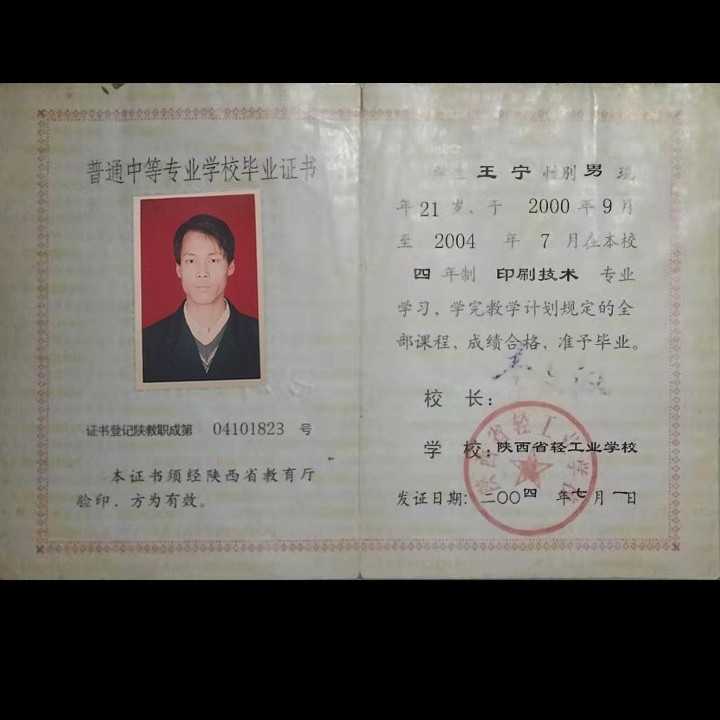 普通中等专业学校毕业证书
证书登记陕教职成第 04101823 号
本证书须经陕西省教育厅
验印，方为有效。
学生 王宁 性别 男 现
年 21 岁、于 2000 年 9 月
至 2004 年 7 月在本校
四 年制 印刷技术 专业
学习，学完教学计划规定的全
部课程、成绩合格、准予毕业。
校 长：
学 校：陕西省轻工业学校
发证日期：二〇〇四 年七月一日
陕西省轻工业学校